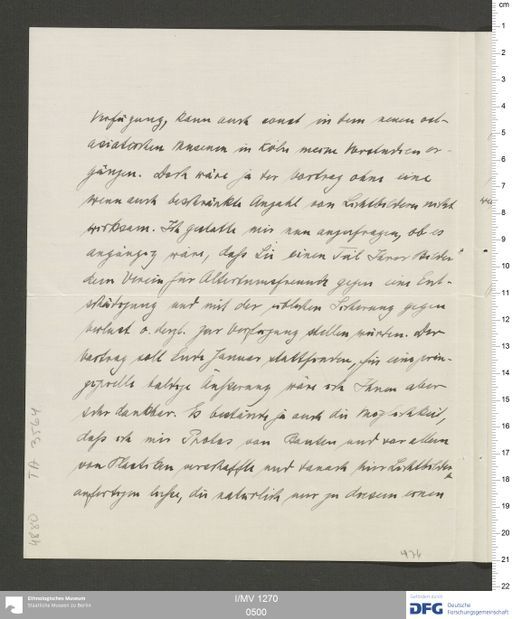 Verfügung, kann auch sonst in dem neuen ost-
asiatischen Museum in Köln meine Vorstudien er-
gänzen. Doch wäre ja der Vortrag ohne eine
wenn auch beschränkte Anzahl von Lichtbildern nicht
wirksam. Ich gestatte mir nun anzufragen, ob es
angängig wäre, daß Sie einen Teil Ihrer Bilder
dem Verein für Altertumsfreunde gegen eine Ent-
schädigung und mit der üblichen Sicherung gegen
Verlust o. dergl. zur Verfügung stellen würden. Der
Vortrag soll Ende Januar stattfinden, für eine prin-
zipielle baldige Äußerung wäre ich Ihnen aber
sehr dankbar. Es bestünde ja auch die Möglichkeit,
daß ich mir Photos von Bauten und vor allem
von Plastiken verschaffte und danach hier Lichtbilder
anfertigen ließe, die natürlich nur zu diesem einen
476
4880 TA 3564
cm
1
2
3
4
5
6
7
8
9
10
11
12
13
14
15
16
17
18
19
20
21
22
Ethnologisches Museum
Staatliche Museen zu Berlin
I/MV 1270
0500
Gefördert durch
DFG Deutsche
Forschungsgemeinschaft